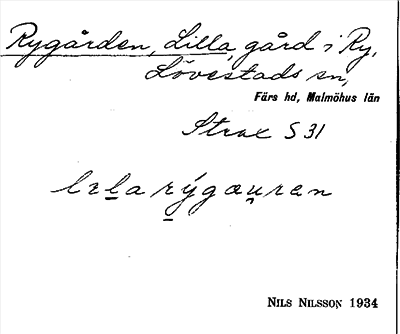 Rygården, Lilla, gård i Ry,
Lövestads sn,
Färs hd, Malmöhus län
Strax S 31
lɪḻa ṟýgæu̯ṛen
NILS NILSSON 1934